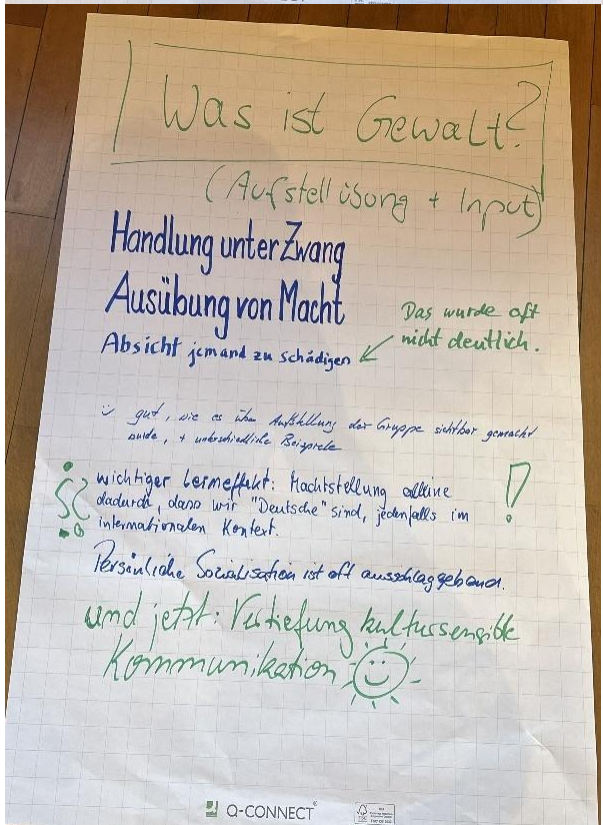 Was ist Gewalt?
(Aufstellübung + Input)
Handlung unter Zwang
Ausübung von Macht
Absicht jemand zu schädigen
Das wurde oft
nicht deutlich.
gut, wie es über Aufstellung der Gruppe sichtbar gemacht
wurde, + unterschiedliche Beispiele
wichtiger Lerneffekt: Machtstellung alleine
dadurch, dass wir "Deutsche" sind, jedenfalls im
internationalen Kontext.
!
Persönliche Sozialisation ist oft ausschlaggebend.
und jetzt: Vertiefung kultursensible
Kommunikation
Q-CONNECT